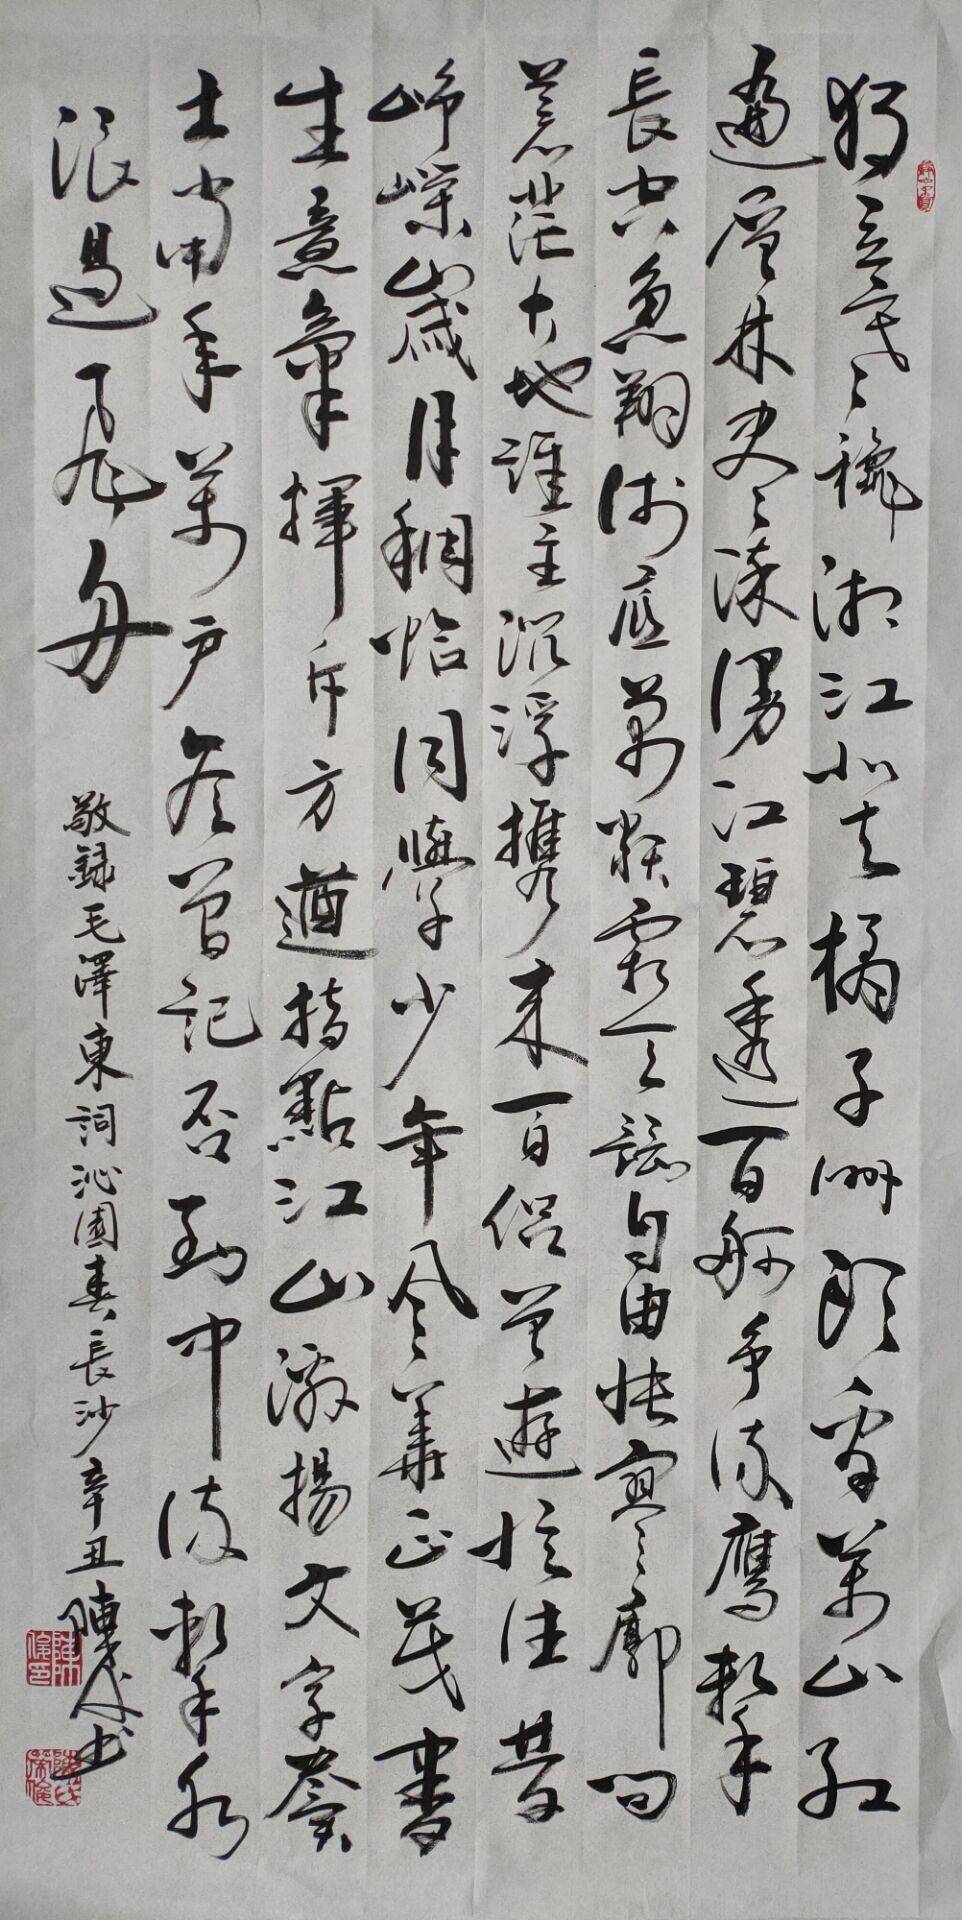 獨立寒秋湘江北去橘子洲頭看萬山紅
遍層林盡染漫江碧透百舸爭流鷹擊
長空魚翔淺底萬類霜天競自由悵寥廓問
蒼茫大地誰主沉浮攜來百侶曾遊憶往昔
崢嶸歲月稠恰同學少年風華正茂書
生意氣揮斥方遒指點江山激揚文字糞
土當年萬戶侯曾記否到中流擊水
浪遏飛舟
敬錄毛澤東詞沁園春長沙辛丑陳書